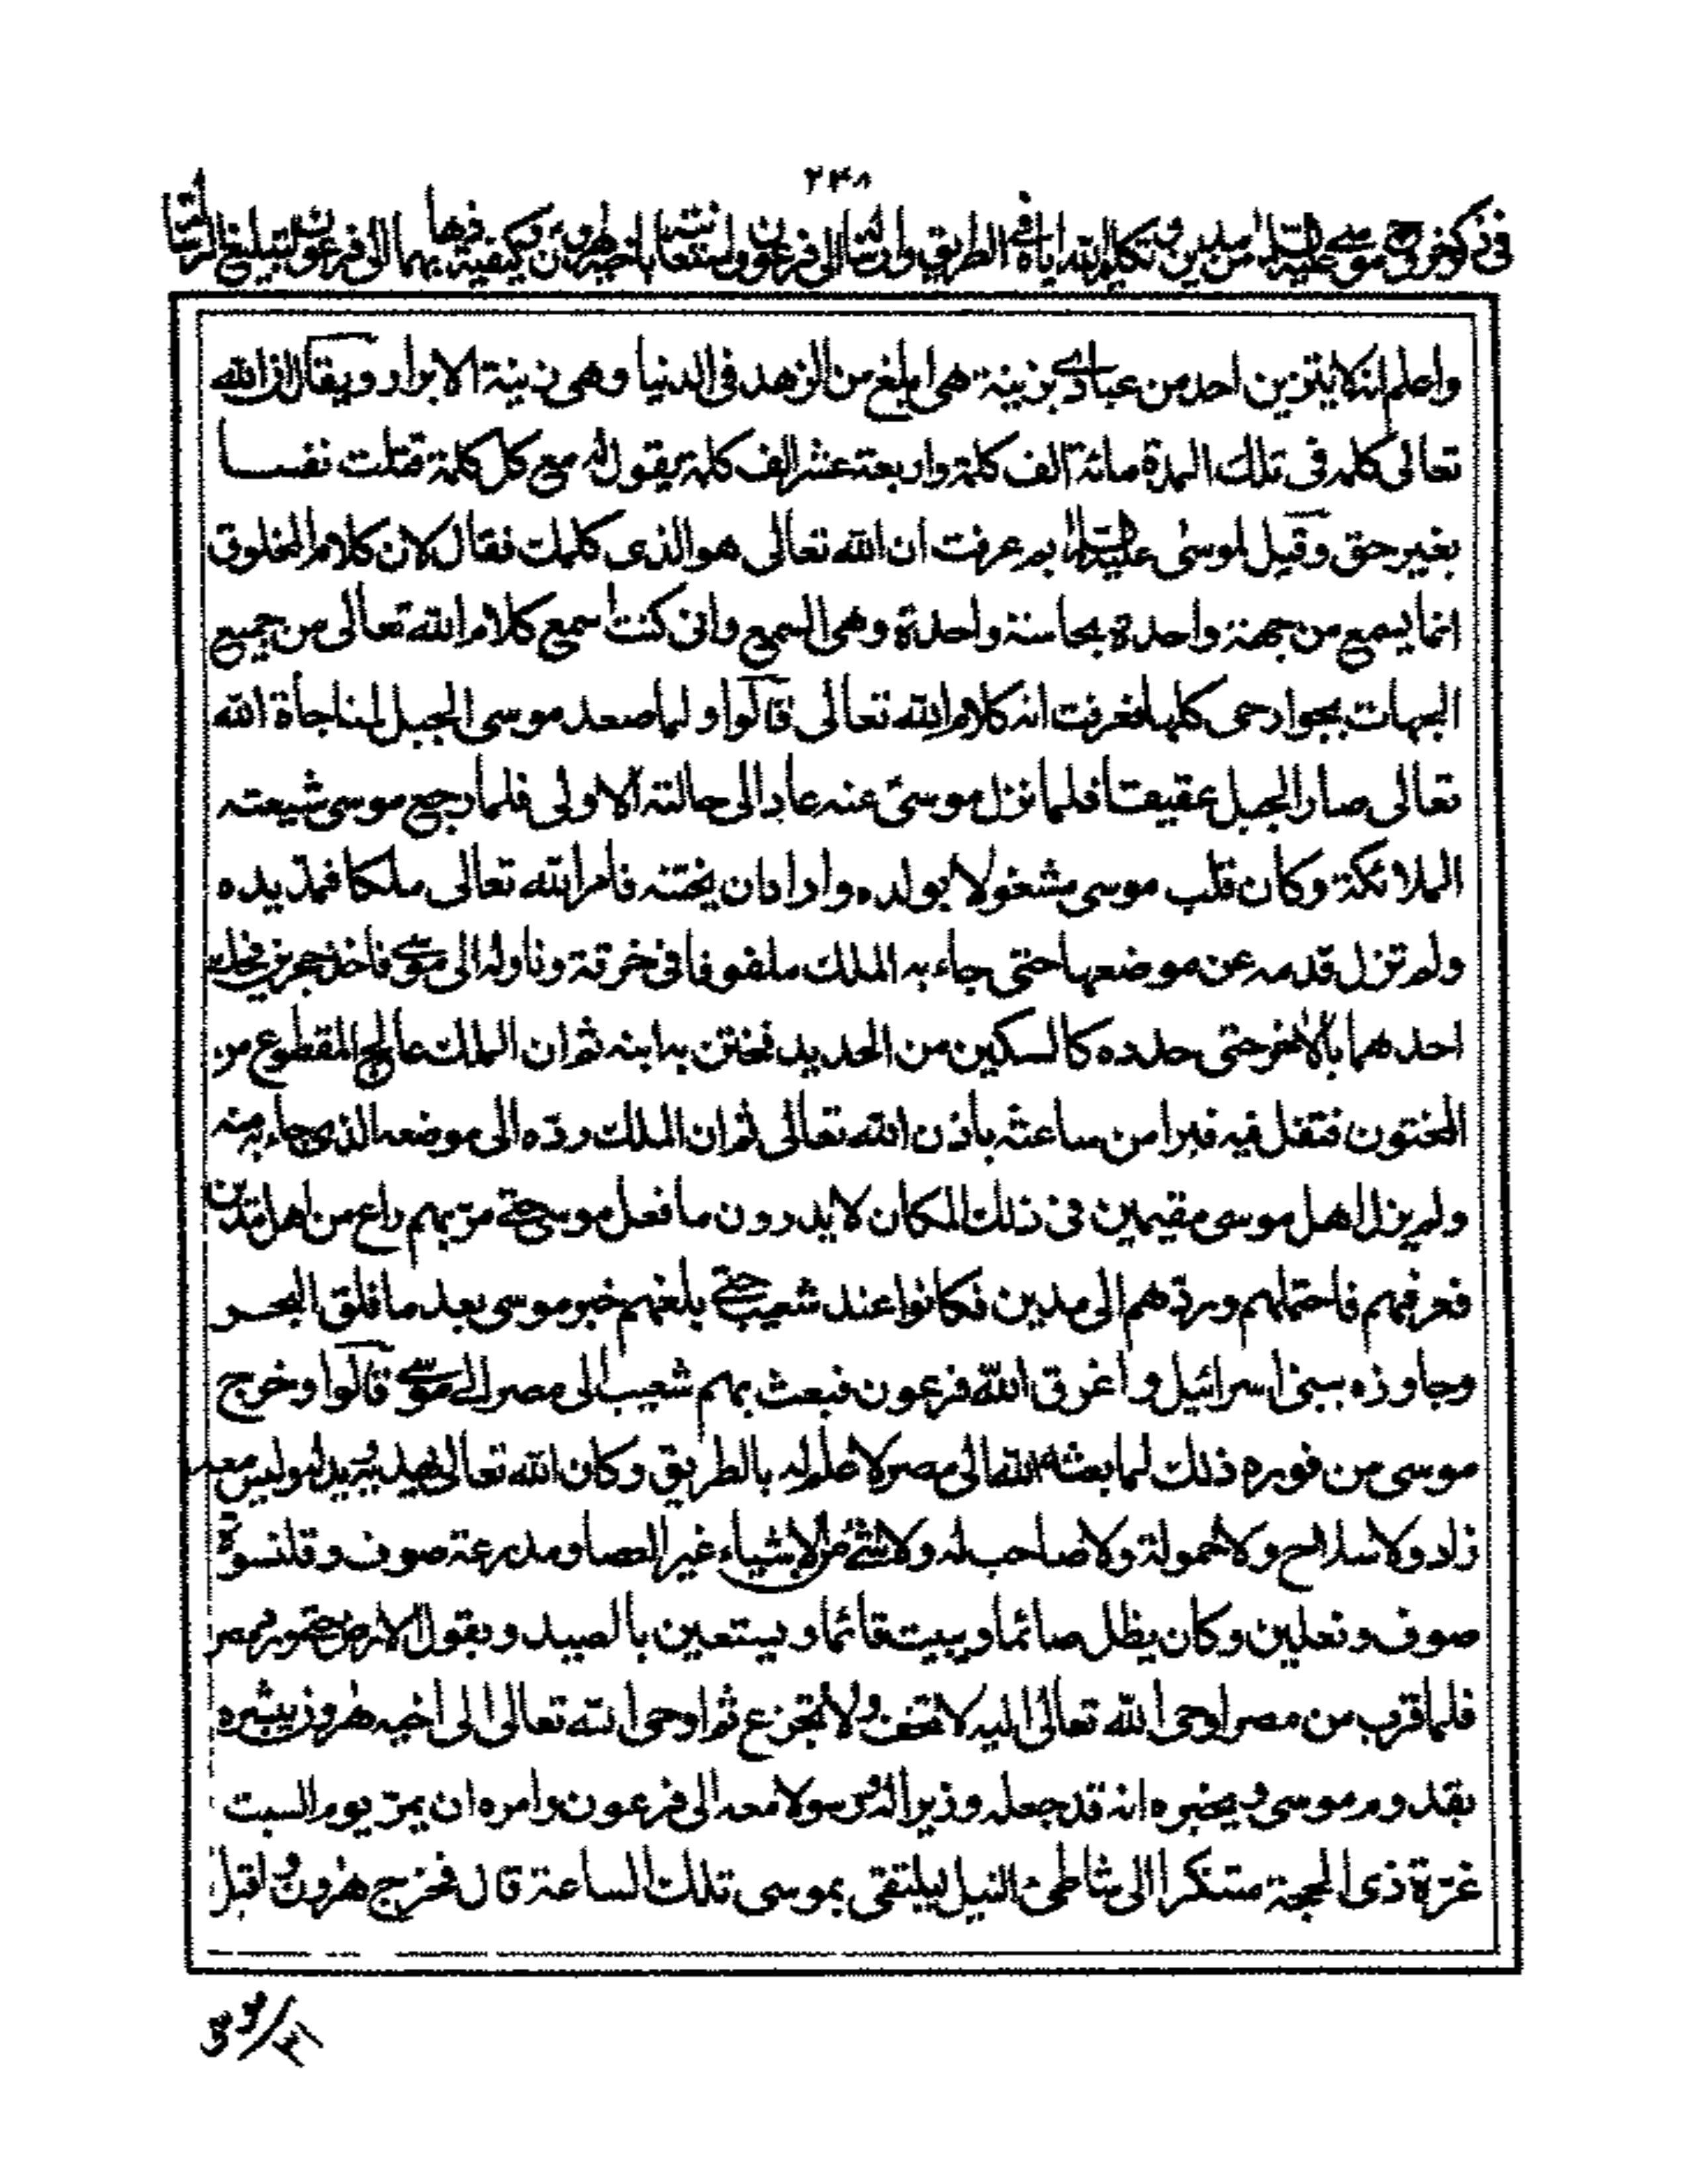 ٢٣٨
فى ذكر خروج موسى عليه السلام من مدين وتكليم الله اياه فى الطريق وارساله الى فرعون واستعانته باخيه هرون وكيفية ذهابهما الى فرعون لتبليغ الرسالة
واعلم انه لا يتزين احد من عبادى بزينة هى ابلغ من الزهد فى الدنيا وهى زينة الابرار ويقال ان الله
تعالى كلمه فى تلك المدة مائة الف كلمة واربعة عشر الف كلمة يقول له مع كل كلمة قتلت نفسا
بغير حق وقيل لموسى عليه السلام بم عرفت ان الله تعالى هو الذى كلمك فقال لان كلام المخلوق
انما يسمع من جهة واحدة بحاسة واحدة وهى السمع وانى كنت اسمع كلام الله تعالى من جميع
الجهات بجوارحى كلها فعرفت انه كلام الله تعالى قالوا ولما صعد موسى الجبل لمناجاة الله
تعالى صار الجبل عقيقا فلما نزل موسى عنه عاد الى حالته الاولى فلما رجع موسى شيعته
الملائكة وكان قلب موسى مشغولا بولده واراد ان يختنه فامر الله تعالى ملكا فمد يده
ولم تزل قدمه عن موضعها حتى جاء به الملك ملفوفا فى خرقة وناوله الى موسى فاخذ حجرين فحك
احدهما بالاخر حتى حدده كالسكين من الحديد فختن به ابنه ثم ان الملك عالج المقطوع من
المختون فتفل فيه فبرا من ساعته باذن الله تعالى ثم ان الملك رده الى موضعه الذى جاء به منه
ولم يزل اهل موسى مقيمين فى ذلك المكان لا يدرون ما فعل موسى حتى مر بهم راع من اهل مدين
فعرفهم فاحتملهم وردهم الى مدين فكانوا عند شعيب حتى بلغهم خبر موسى بعد ما فلق البحر
وجاوزه ببنى اسرائيل واغرق الله فرعون فبعث بهم شعيب الى مصر الى موسى قالوا وخرج
موسى من فوره ذلك لما بعثه الله الى مصر لا علم له بالطريق وكان الله تعالى يهديه وليس معه
زاد ولا سلاح ولا حمولة ولا صاحب له ولا شئ من الاشياء غير العصا ومدرعة صوف وقلنسوة
صوف ونعلين وكان يظل صائما ويبيت قائما ويستعين بالصيد وبقول الارض حتى ورد مصر
فلما قرب من مصر اوحى الله تعالى اليه لا تخف ولا تجزع ثم اوحى الله تعالى الى اخيه هرون يبشره
بقدوم موسى ويخبره انه قد جعله وزيرا له ورسولا معه الى فرعون وامره ان يمر يوم السبت
غرة ذى الحجة متنكرا الى شاطئ النيل ليلتقى بموسى تلك الساعة قال فخرج هرون واقبل